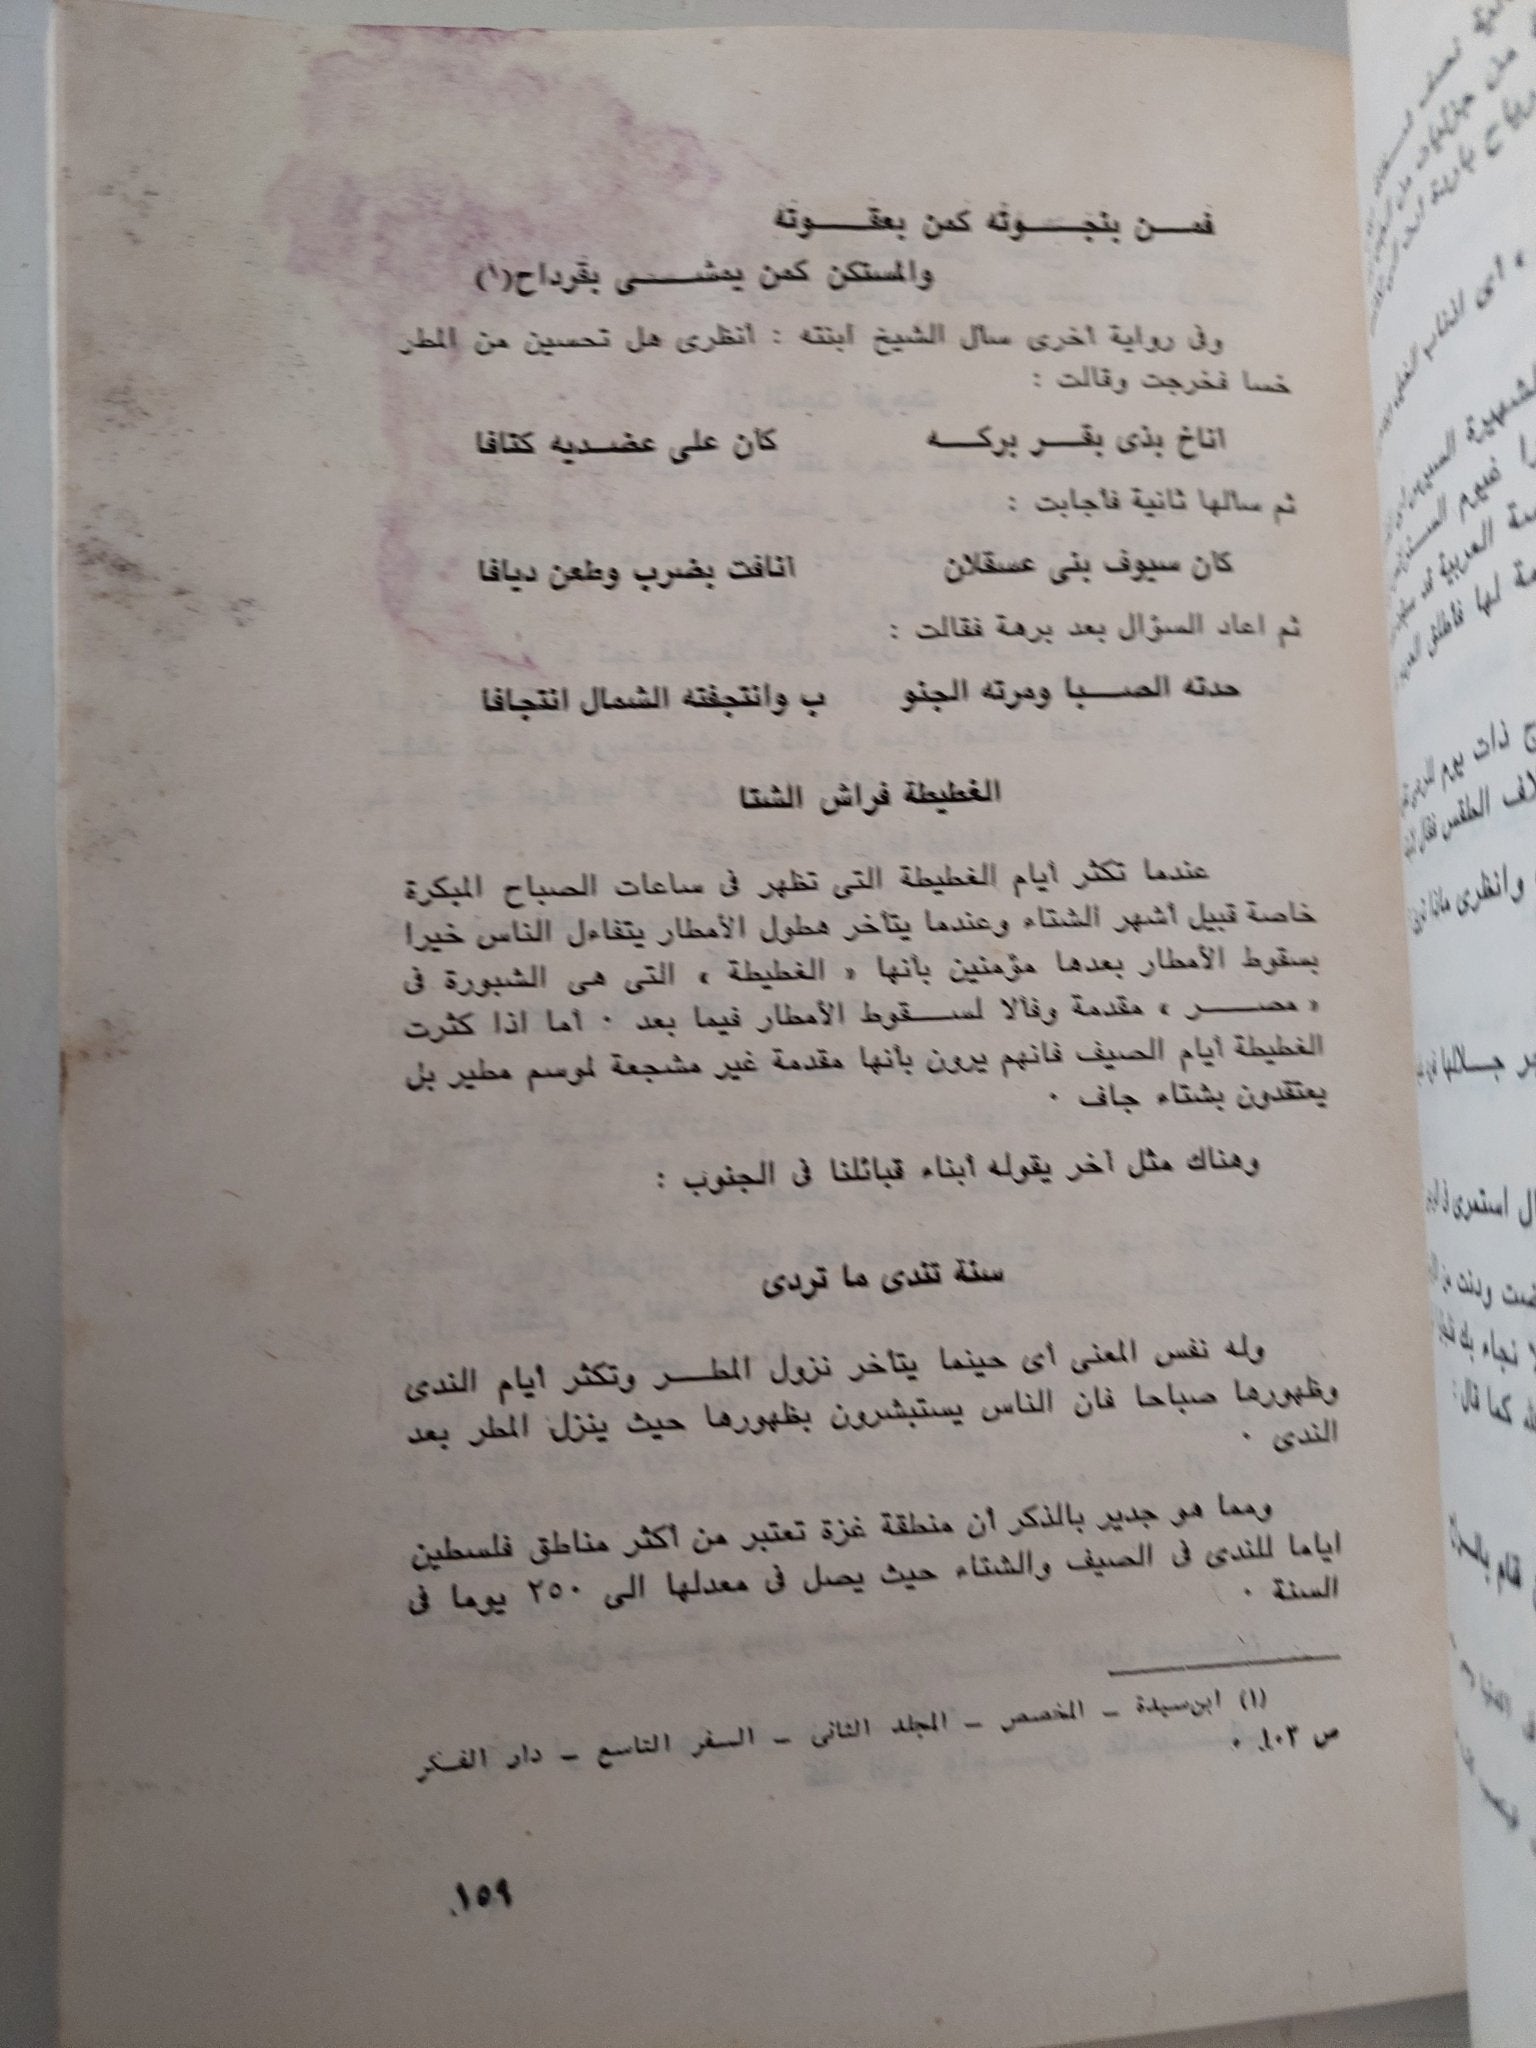 فمـــن بنجـــوته كمن بعقـــوته
والمستكن كمن يمشـــى بقرداح(١)
وفى رواية أخرى سأل الشيخ ابنته : أنظرى هل تحسين من المطر
خسا فخرجت وقالت :
اناخ بذى بقـــر بركـــه كأن على عضديه كتافا
ثم سألها ثانية فأجابت :
كأن سيوف بنى عسقلان انافت بضرب وطعن ديافا
ثم اعاد السؤال بعد برهة فقالت :
حدته الصـــبا ومرته الجنو ب وانتجفته الشمال انتجافا
الغطيطة فراش الشتا
عندما تكثر أيام الغطيطة التى تظهر فى ساعات الصباح المبكرة
خاصة قبيل أشهر الشتاء وعندما يتأخر هطول الأمطار يتفاءل الناس خيرا
بسقوط الأمطار بعدها مؤمنين بأنها « الغطيطة » التى هى الشبورة فى
« مصـــر » مقدمة وفألا لســـقوط الأمطار فيما بعد ٠ أما اذا كثرت
الغطيطة أيام الصيف فانهم يرون بأنها مقدمة غير مشجعة لموسم مطير بل
يعتقدون بشتاء جاف ٠
وهناك مثل آخر يقوله أبناء قبائلنا فى الجنوب :
سنة تندى ما تردى
وله نفس المعنى أى حينما يتأخر نزول المطـــر وتكثر أيام الندى
وظهورها صباحا فان الناس يستبشرون بظهورها حيث ينزل المطر بعد
الندى ٠
ومما هو جدير بالذكر أن منطقة غزة تعتبر من أكثر مناطق فلسطين
اياما للندى فى الصيف والشتاء حيث يصل فى معدلها الى ٢٥٠ يوما فى
السنة ٠
(١) ابن سيدة – المخصص – المجلد الثانى – السفر التاسع – دار الفكر
ص ١٠٣ ٠
١٥٩